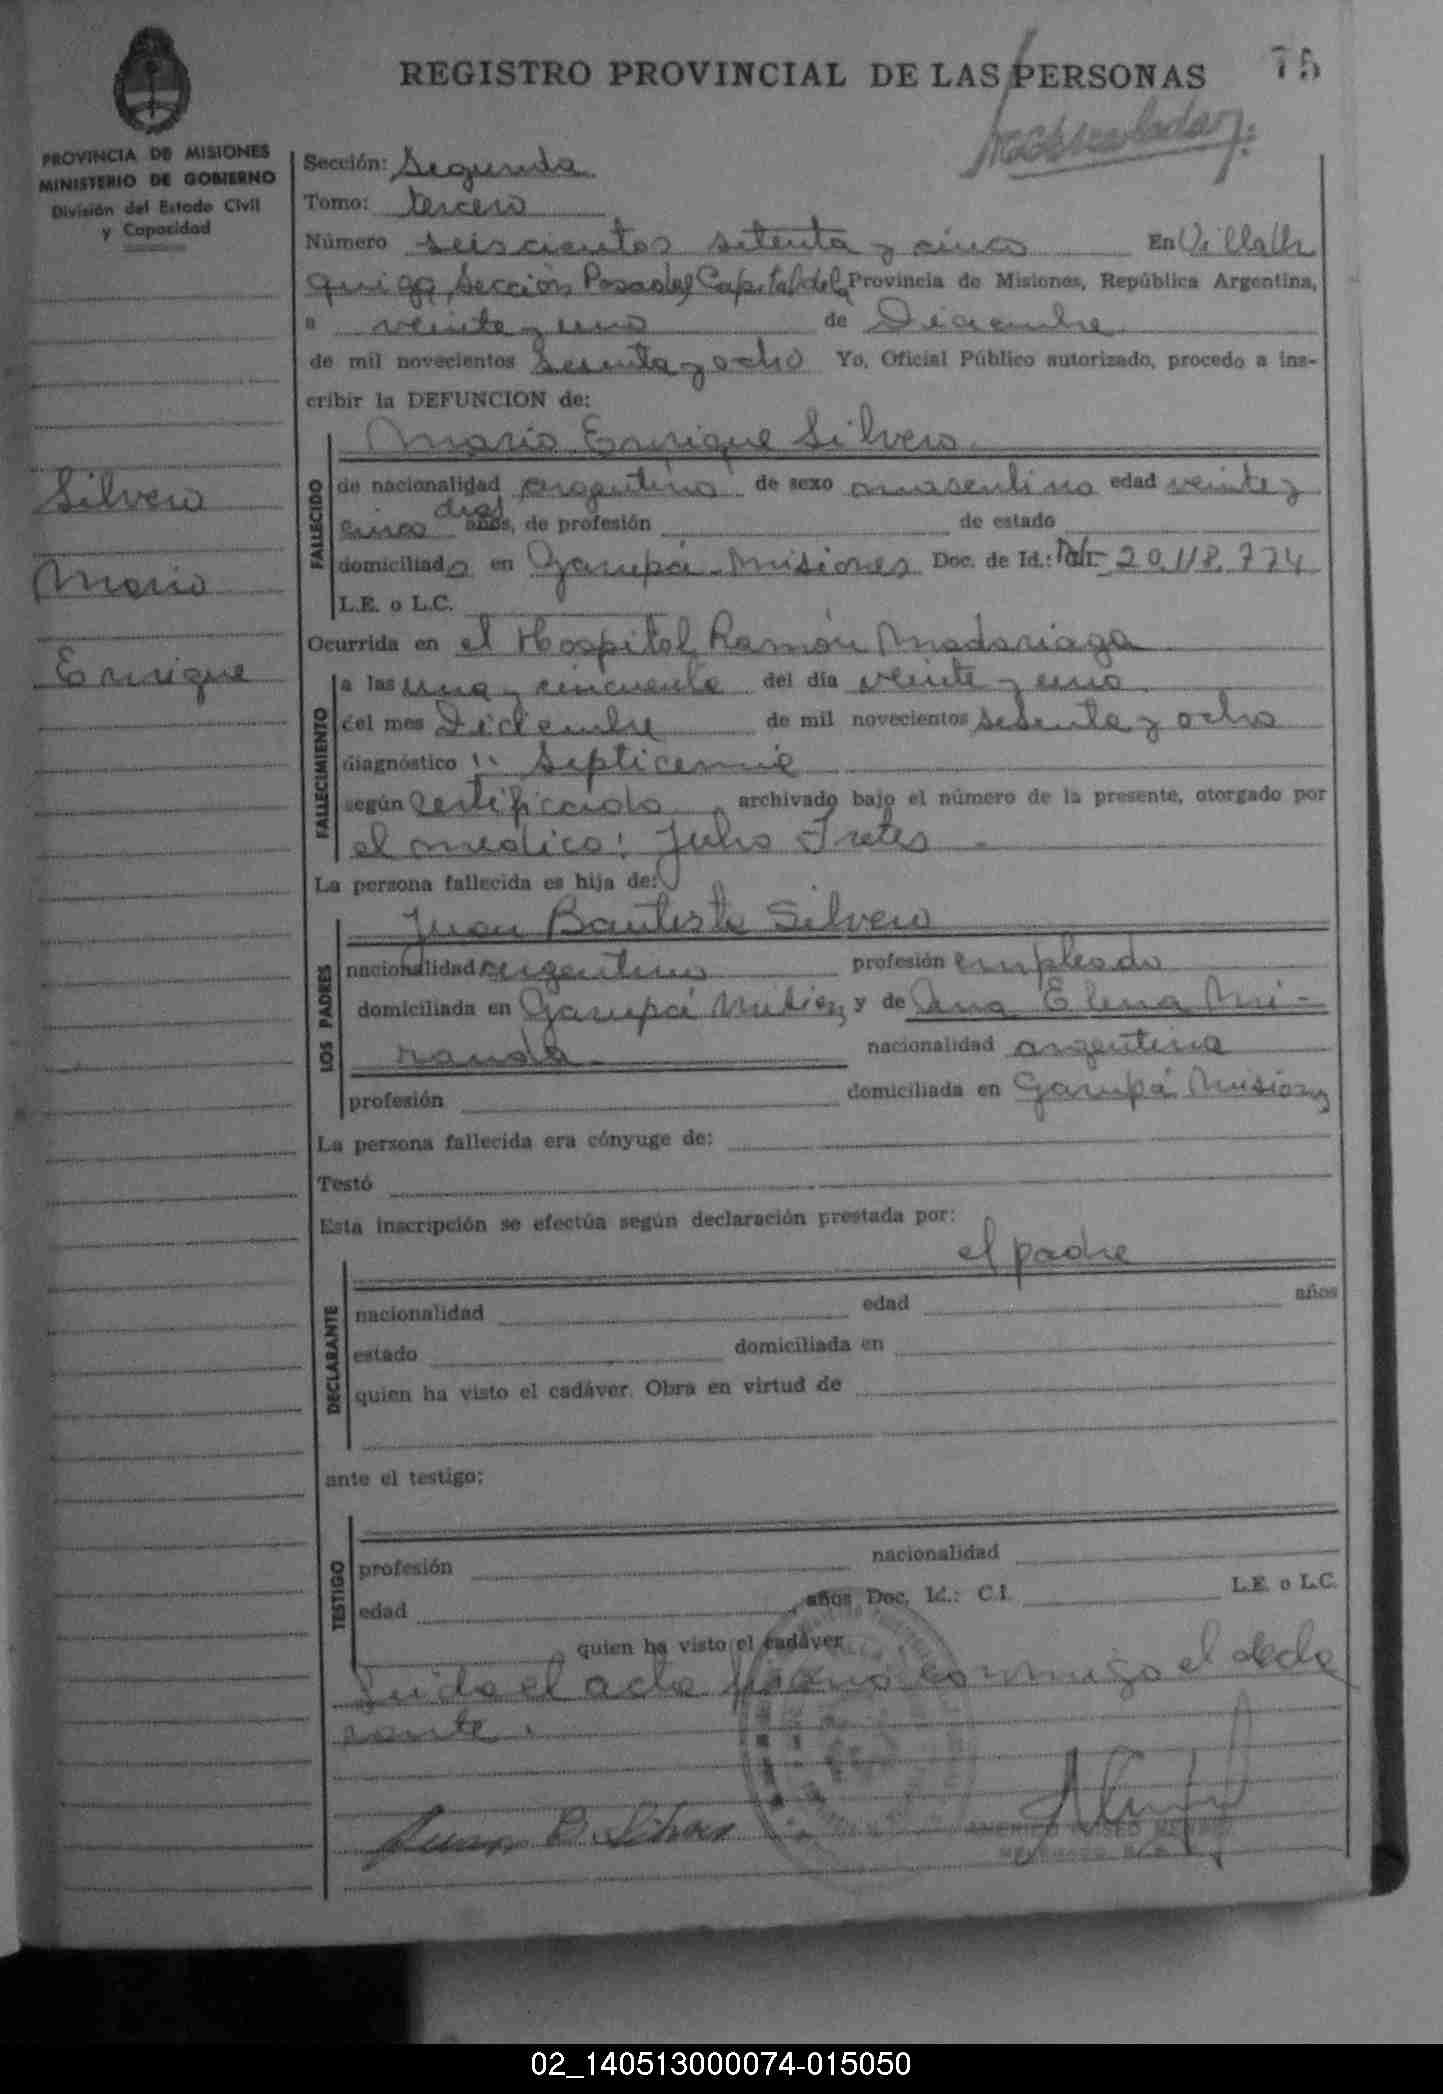 REGISTRO PROVINCIAL DE LAS PERSONAS 75
PROVINCIA DE MISIONES
MINISTERIO DE GOBIERNO
División del Estado Civil
y Capacidad
Silvero
Mario
Enrique
Sección: Segunda
Tomo: tercero
Número seiscientos setenta y cinco En Villa Ur
quiza, Sección Posadas Capital de la Provincia de Misiones, República Argentina,
a veinte y uno de Diciembre
de mil novecientos sesenta y ocho Yo, Oficial Público autorizado, procedo a ins-
cribir la DEFUNCION de:
Mario Enrique Silvero
FALLECIDO
de nacionalidad argentino de sexo masculino edad veinte y
cinco días años, de profesión de estado
domiciliado en Garupá - Misiones Doc. de Id.: 20.118.774
L.E. o L.C.
Ocurrida en el Hospital Ramón Madariaga
FALLECIMIENTO
a las una y cincuenta del día veinte y uno
del mes Diciembre de mil novecientos sesenta y ocho
diagnóstico Septicemia
según certificado archivado bajo el número de la presente, otorgado por
el médico: Julio Fretes
La persona fallecida es hija de:
Juan Bautista Silvero
LOS PADRES
nacionalidad argentino profesión empleado
domiciliada en Garupá Misiones y de Ana Elena Mi-
randa nacionalidad argentina
profesión domiciliada en Garupá Misiones
La persona fallecida era cónyuge de:
Testó
Esta inscripción se efectúa según declaración prestada por:
el padre
DECLARANTE
nacionalidad edad años
estado domiciliada en
quien ha visto el cadáver. Obra en virtud de
ante el testigo:
TESTIGO
profesión nacionalidad
edad años Doc. Id.: C.I. L.E. o L.C.
quien ha visto el cadáver
Leida el acta firma conmigo el decla
rante.
Juan B. Silvero
02_140513000074-015050